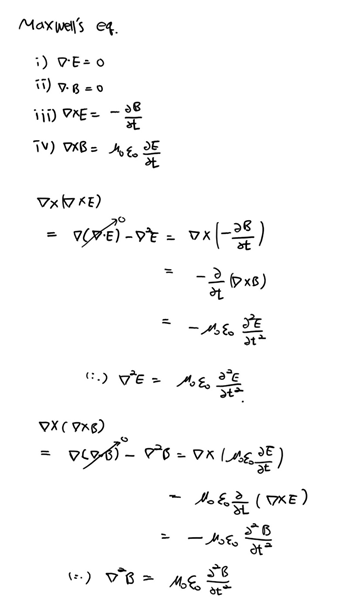 Maxwell's eq.
i) ∇·E = 0
ii) ∇·B = 0
iii) ∇×E = -∂B/∂t
iv) ∇×B = μ₀ε₀ ∂E/∂t
∇×(∇×E)
= ∇(∇·E)→0 - ∇²E = ∇×(-∂B/∂t)
= -∂/∂t (∇×B)
= -μ₀ε₀ ∂²E/∂t²
(∴) ∇²E = μ₀ε₀ ∂²E/∂t².
∇×(∇×B)
= ∇(∇·B)→0 - ∇²B = ∇×(μ₀ε₀ ∂E/∂t)
= μ₀ε₀ ∂/∂t (∇×E)
= -μ₀ε₀ ∂²B/∂t²
(∴) ∇²B = μ₀ε₀ ∂²B/∂t²